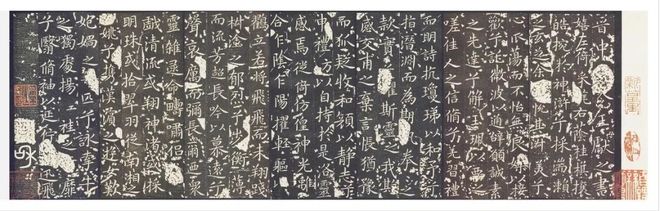 晉中書令王獻之書
嬉左倚采旄右蔭桂旗攘
皓腕於神滸兮采湍瀨
之玄芝余情悅其淑美兮
心振蕩而不怡無良媒以接
懽兮託微波以通辭願誠素
之先達兮解玉珮而要之
嗟佳人之信脩兮羌習禮
而明詩抗瓊珶以和予兮
指潛淵而為期執拳拳之
款實兮懼斯靈之我欺
感交甫之棄言悵猶豫
而狐疑收和顏以靜志兮
申禮防以自持於是洛靈
感焉徙倚仿偟神光離
合乍陰乍陽擢輕軀以
鶴立若將飛而未翔踐
椒塗之郁烈步衡薄
而流芳超長吟以慕遠兮
聲哀厲而彌長爾乃衆
靈雜遝命儔嘯侶或
戲清流或翔神渚或采
明珠或拾翠羽從南湘之
二姚兮攜漢濱之遊女歎
炮媧之無匹兮詠牽牛
之獨處揚輕袿之猗靡
兮翳脩袖以延佇體迅飛